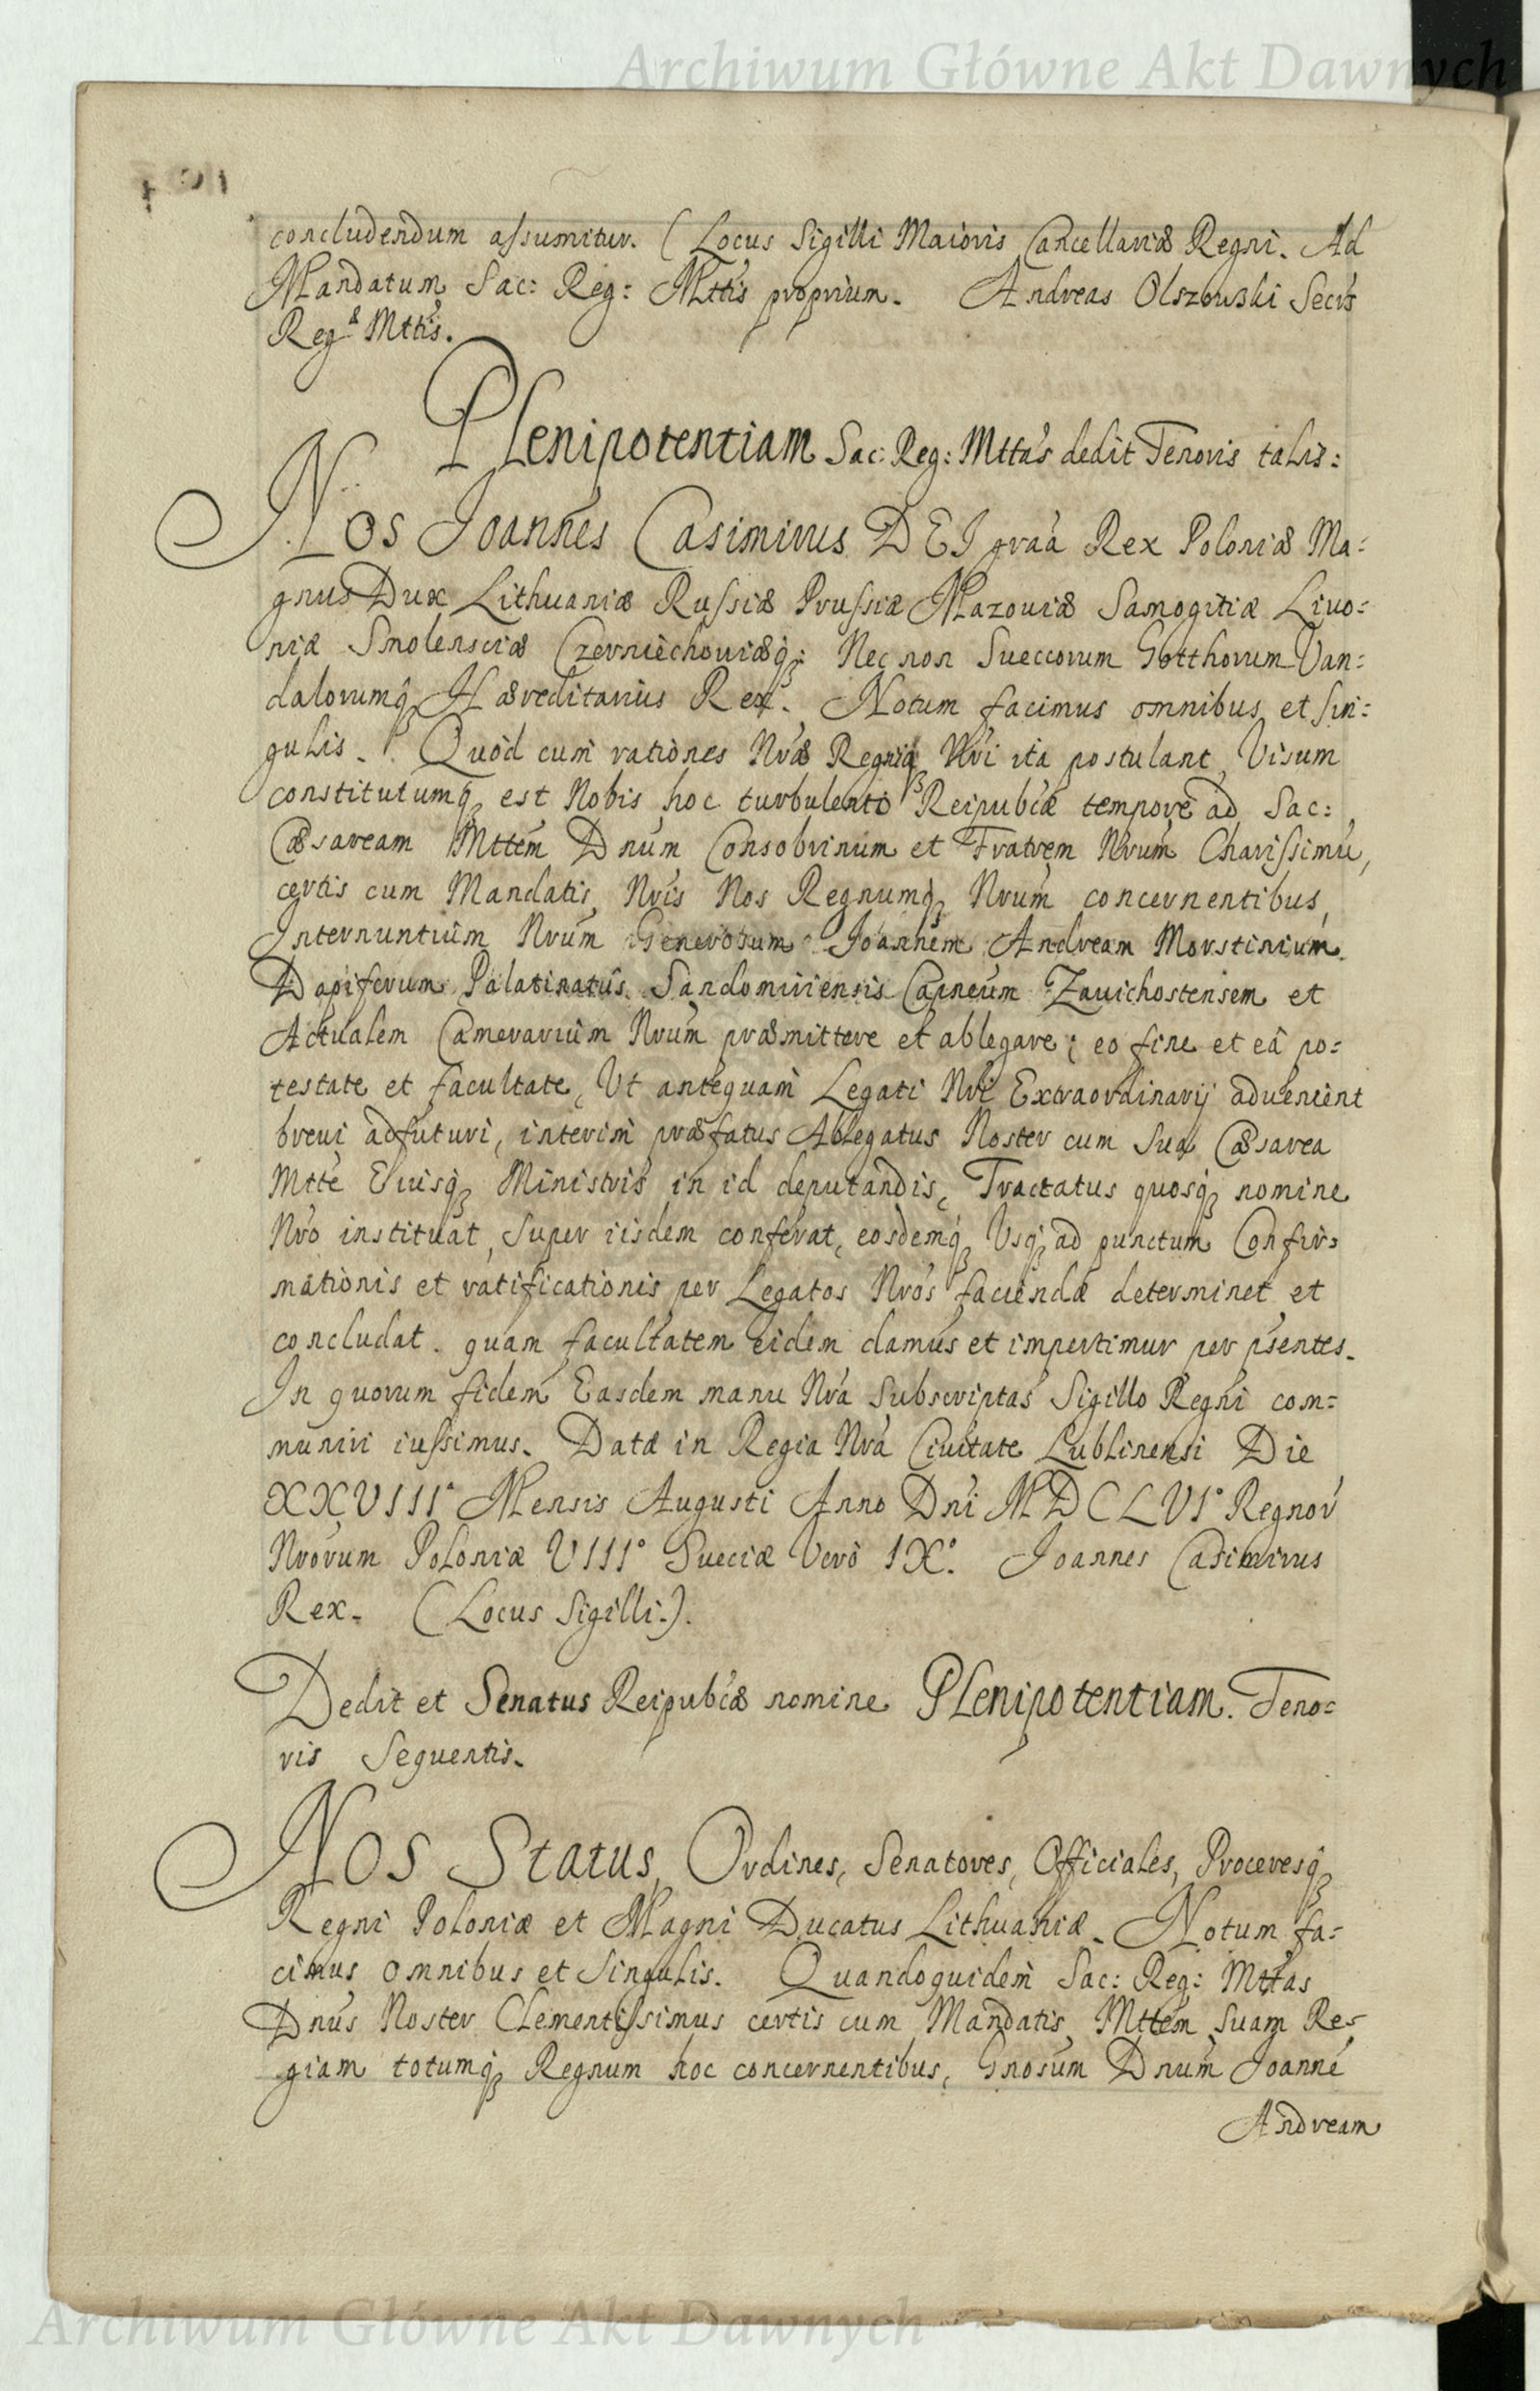 Archiwum Główne Akt Dawnych
concludendum assumitur. (Locus Sigilli Maioris Cancellariæ Regni. Ad
Mandatum Sac: Reg: Mttis proprium. Andreas Olszowski Secrs
Regæ Mttis.
Plenipotentiam Sac: Reg: Mttas dedit Tenoris talis:
Nos Joannes Casimirus DEI graa Rex Poloniæ Ma:
gnus Dux Lithuaniæ Russiæ Prussiæ Mazoviæ Samogitiæ Livo:
niæ Smolensciæ Czerniechouiæq; Nec non Sueccorum Gotthorum Van:
dalorumq; Hæreditarius Rex. Notum facimus omnibus et sin:
gulis. Quòd cum rationes Nræ Regniq; Nri ita postulant, Visum
constitutumq; est Nobis hoc turbulento Reipubcæ tempore ad Sac:
Cæsaream Mttem Dnum Consobrinum et Fratrem Nrum Charissimũ,
certis cum Mandatis Nris Nos Regnumq; Nrum concernentibus,
Internuntium Nrum Generosum Joannem Andream Morstinium
Dapiferum Palatinatûs Sandomiriensis Capneum Zauichostensem et
Actualem Camerarium Nrum præmittere et ablegare; eo fine et eâ po:
testate et facultate, Ut antequam Legati Nri Extraordinarij advenient
brevi adfuturi, interim præfatus Ablegatus Noster cum Sua Cæsarea
Mtte Eiusq; Ministris in id deputandis, Tractatus quosq; nomine
Nro instituat, super iisdem conferat, eosdemq; Usq; ad punctum Confir:
mationis et ratificationis per Legatos Nros faciendæ determinet et
concludat. quam facultatem eidem damus et impertimur per psentes.
In quorum fidem Easdem manu Nra Subscriptas Sigillo Regni com:
muniri iussimus. Datæ in Regia Nra Civitate Lublinensi Die
XXVIII° Mensis Augusti Anno Dni MDCLVI° Regnor
Nrorum Poloniæ VIII° Sueciæ Verò IX°. Joannes Casimirus
Rex. (Locus Sigilli.).
Dedit et Senatus Reipubcæ nomine Plenipotentiam. Teno:
ris Sequentis.
Nos Status, Ordines, Senatores, Officiales, Proceresq;
Regni Poloniæ et Magni Ducatus Lithuaniæ. Notum fa:
cimus omnibus et singulis. Quandoquidem Sac: Reg: Mttas
Dnus Noster Clementissimus certis cum Mandatis Mttem Suam Re:
giam totumq; Regnum hoc concernentibus, Gnosum Dnum Joannẽ
Andream
Archiwum Główne Akt Dawnych